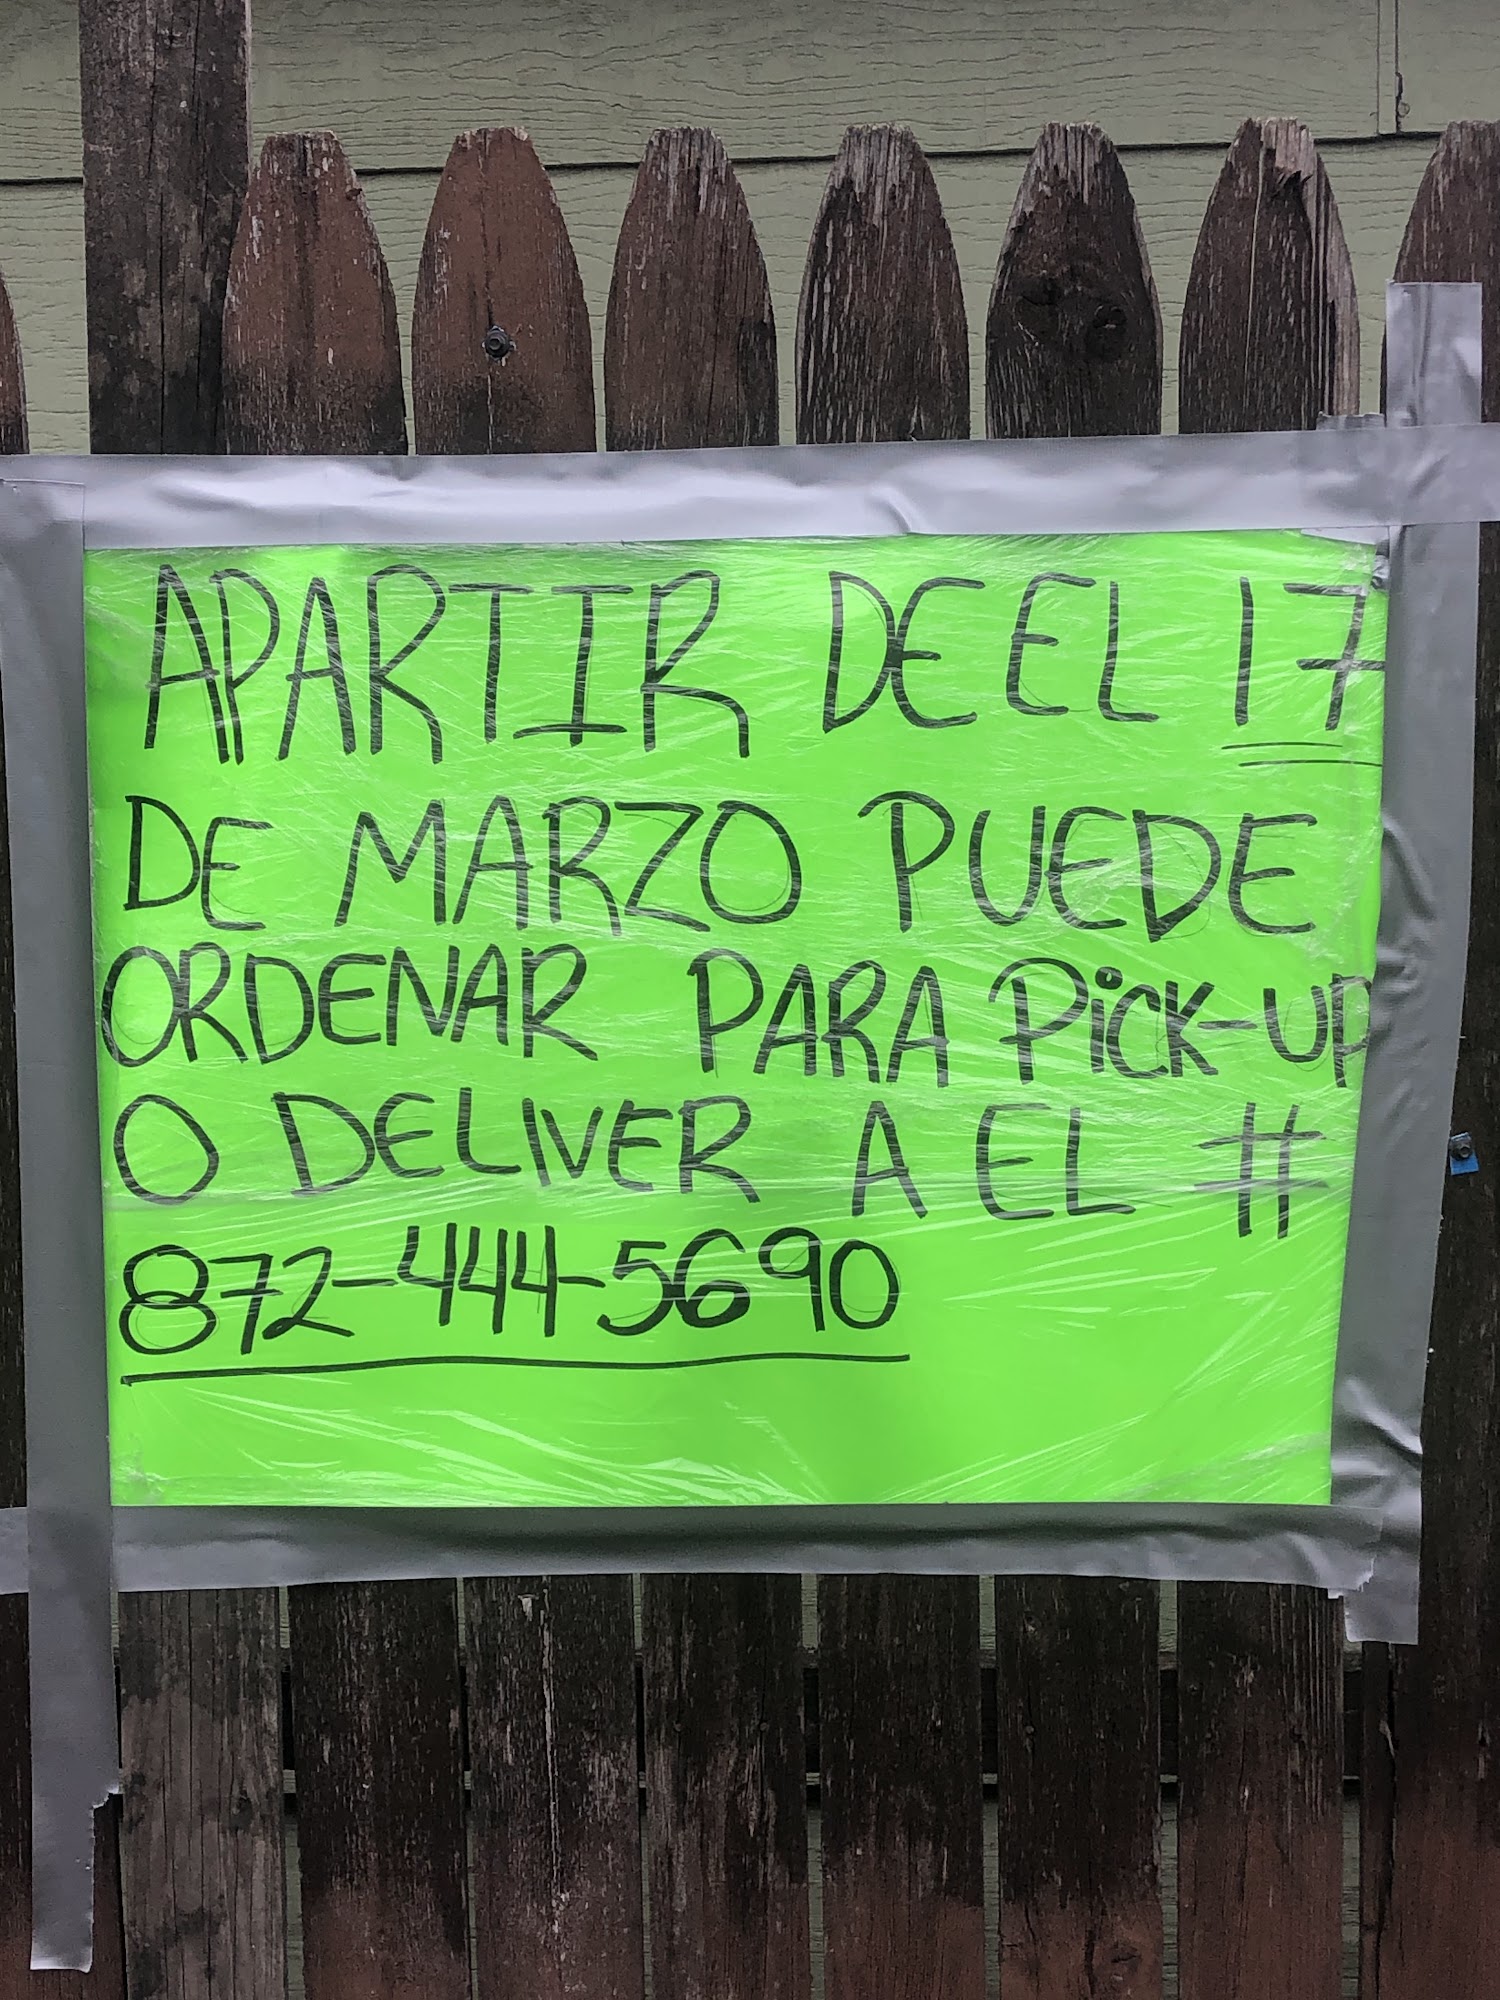 APARTIR DE EL 17
DE MARZO PUEDE
ORDENAR PARA PiCK-UP
O DELIVER A EL #
872-444-5690